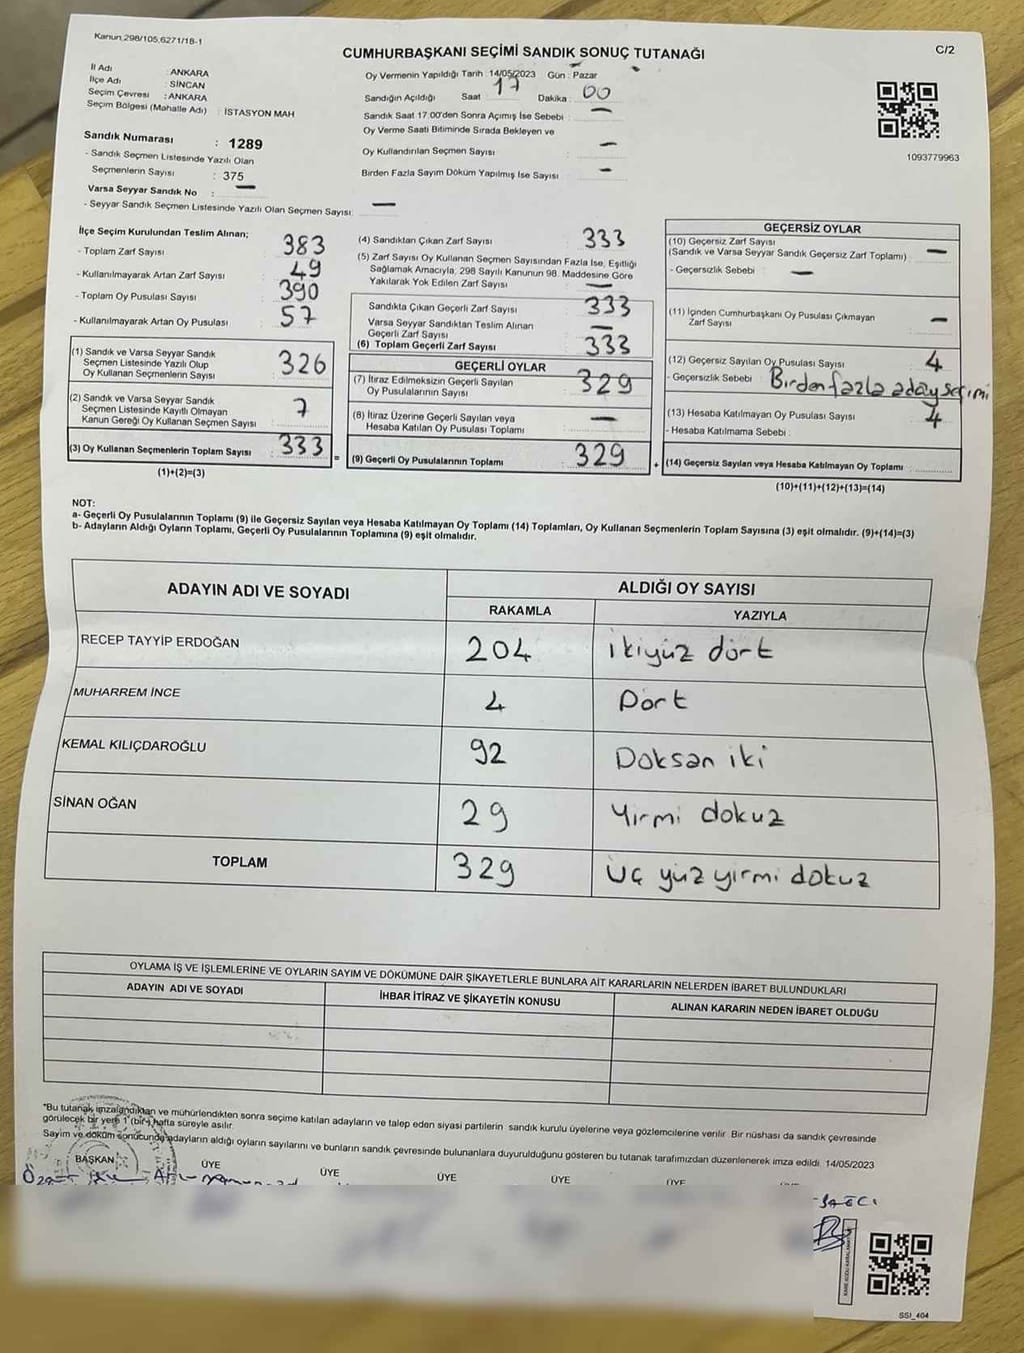 Kanun.298/105,6271/18-1
C/2
CUMHURBAŞKANI SEÇİMİ SANDIK SONUÇ TUTANAĞI
İl Adı : ANKARA
İlçe Adı : SİNCAN
Seçim Çevresi : ANKARA
Seçim Bölgesi (Mahalle Adı) : İSTASYON MAH
Sandık Numarası : 1289
- Sandık Seçmen Listesinde Yazılı Olan
Seçmenlerin Sayısı : 375
Varsa Seyyar Sandık No : —
- Seyyar Sandık Seçmen Listesinde Yazılı Olan Seçmen Sayısı: —
Oy Vermenin Yapıldığı Tarih : 14/05/2023 Gün : Pazar
Sandığın Açıldığı Saat 17 Dakika : 00
Sandık Saat 17.00'den Sonra Açımış İse Sebebi : —
Oy Verme Saati Bitiminde Sırada Bekleyen ve
Oy Kullandırılan Seçmen Sayısı : —
Birden Fazla Sayım Döküm Yapılmış İse Sayısı : —
1093779963
İlçe Seçim Kurulundan Teslim Alınan;
- Toplam Zarf Sayısı : 383
- Kullanılmayarak Artan Zarf Sayısı : 49
- Toplam Oy Pusulası Sayısı : 390
- Kullanılmayarak Artan Oy Pusulası : 57
(1) Sandık ve Varsa Seyyar Sandık
Seçmen Listesinde Yazılı Olup
Oy Kullanan Seçmenlerin Sayısı : 326
(2) Sandık ve Varsa Seyyar Sandık
Seçmen Listesinde Kayıtlı Olmayan
Kanun Gereği Oy Kullanan Seçmen Sayısı : 7
(3) Oy Kullanan Seçmenlerin Toplam Sayısı : 333
(1)+(2)=(3)
(4) Sandıktan Çıkan Zarf Sayısı : 333
(5) Zarf Sayısı Oy Kullanan Seçmen Sayısından Fazla İse, Eşitliği
Sağlamak Amacıyla, 298 Sayılı Kanunun 98. Maddesine Göre
Yakılarak Yok Edilen Zarf Sayısı : —
Sandıkta Çıkan Geçerli Zarf Sayısı : 333
Varsa Seyyar Sandıktan Teslim Alınan
Geçerli Zarf Sayısı : —
(6) Toplam Geçerli Zarf Sayısı : 333
GEÇERLİ OYLAR
(7) İtiraz Edilmeksizin Geçerli Sayılan
Oy Pusulasının Sayısı : 329
(8) İtiraz Üzerine Geçerli Sayılan veya
Hesaba Katılan Oy Pusulası Toplamı : —
= (9) Geçerli Oy Pusulalarının Toplamı : 329 +
GEÇERSİZ OYLAR
(10) Geçersiz Zarf Sayısı
(Sandık ve Varsa Seyyar Sandık Geçersiz Zarf Toplamı) : —
- Geçersizlik Sebebi : —
(11) İçinden Cumhurbaşkanı Oy Pusulası Çıkmayan
Zarf Sayısı : —
(12) Geçersiz Sayılan Oy Pusulası Sayısı : 4
- Geçersizlik Sebebi : Birden fazla aday seçimi
(13) Hesaba Katılmayan Oy Pusulası Sayısı : 4
- Hesaba Katılmama Sebebi :
(14) Geçersiz Sayılan veya Hesaba Katılmayan Oy Toplamı :
(10)+(11)+(12)+(13)=(14)
NOT:
a- Geçerli Oy Pusulalarının Toplamı (9) ile Geçersiz Sayılan veya Hesaba Katılmayan Oy Toplamı (14) Toplamları, Oy Kullanan Seçmenlerin Toplam Sayısına (3) eşit olmalıdır. (9)+(14)=(3)
b- Adayların Aldığı Oyların Toplamı, Geçerli Oy Pusulalarının Toplamına (9) eşit olmalıdır.
ADAYIN ADI VE SOYADI
ALDIĞI OY SAYISI
RAKAMLA YAZIYLA
RECEP TAYYİP ERDOĞAN 204 ikiyüz dört
MUHARREM İNCE 4 Dört
KEMAL KILIÇDAROĞLU 92 Doksan iki
SİNAN OĞAN 29 Yirmi dokuz
TOPLAM 329 Üç yüz yirmi dokuz
OYLAMA İŞ VE İŞLEMLERİNE VE OYLARIN SAYIM VE DÖKÜMÜNE DAİR ŞİKAYETLERLE BUNLARA AİT KARARLARIN NELERDEN İBARET BULUNDUKLARI
ADAYIN ADI VE SOYADI İHBAR İTİRAZ VE ŞİKAYETİN KONUSU ALINAN KARARIN NEDEN İBARET OLDUĞU
"Bu tutanak imzalandıktan ve mühürlendikten sonra seçime katılan adayların ve talep eden siyasi partilerin sandık kurulu üyelerine veya gözlemcilerine verilir. Bir nüshası da sandık çevresinde
görülecek bir yere 1 (bir) hafta süreyle asılır.
Sayım ve döküm sonucunda adayların aldığı oyların sayılarını ve bunların sandık çevresinde bulunanlara duyurulduğunu gösteren bu tutanak tarafımızdan düzenlenerek imza edildi. 14/05/2023
BAŞKAN ÜYE ÜYE ÜYE ÜYE ÜYE
SSI_404